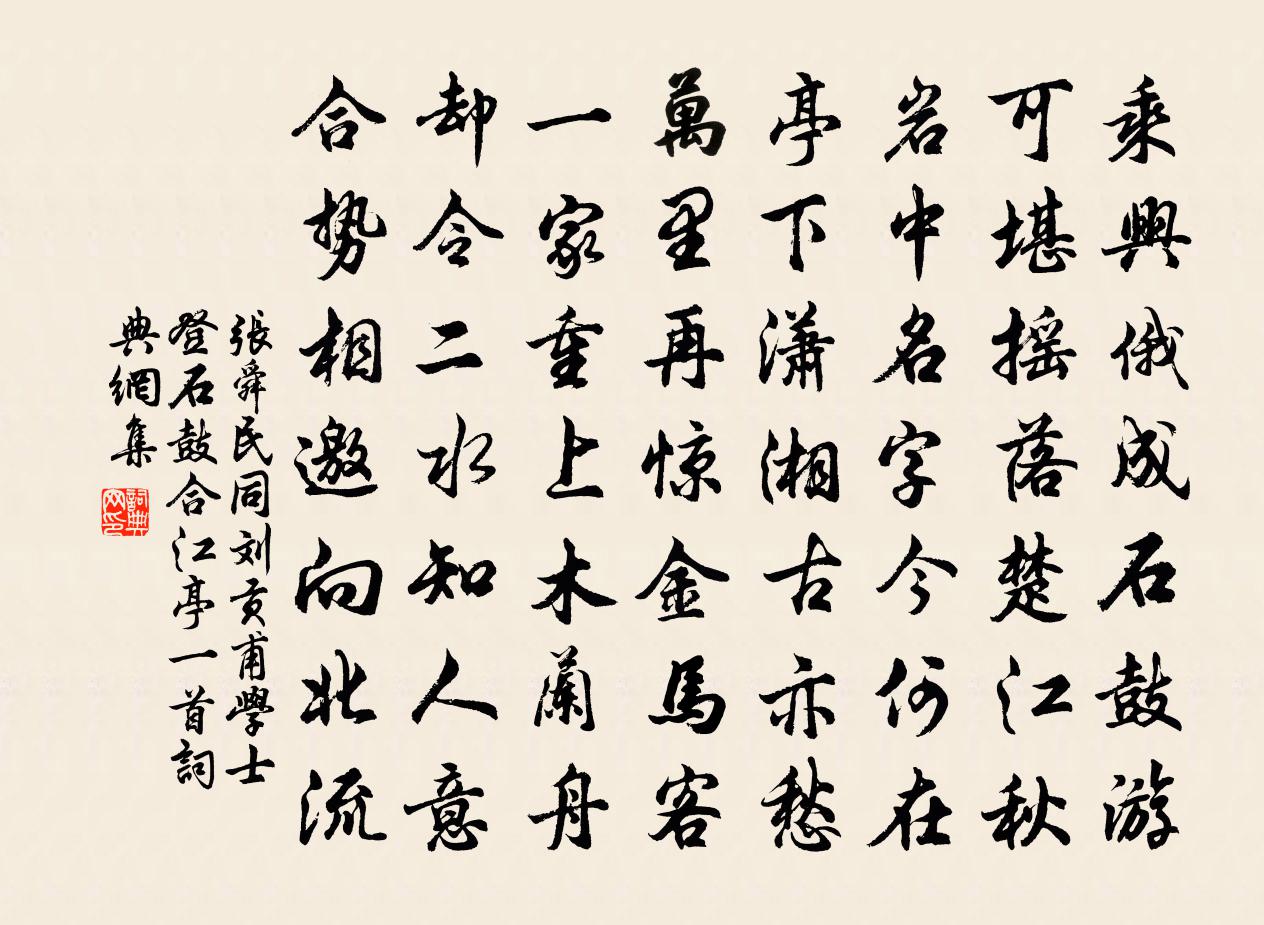 乘興俄成石鼓游
可堪摇落楚江秋
岩中名字今何在
亭下瀟湘古亦愁
萬里再惊金馬客
一家重上木蘭舟
却令二水知人意
合势相邀向北流
張舜民同刘贡甫學士
登石鼓合江亭一首詞
典網集
詞典
网印